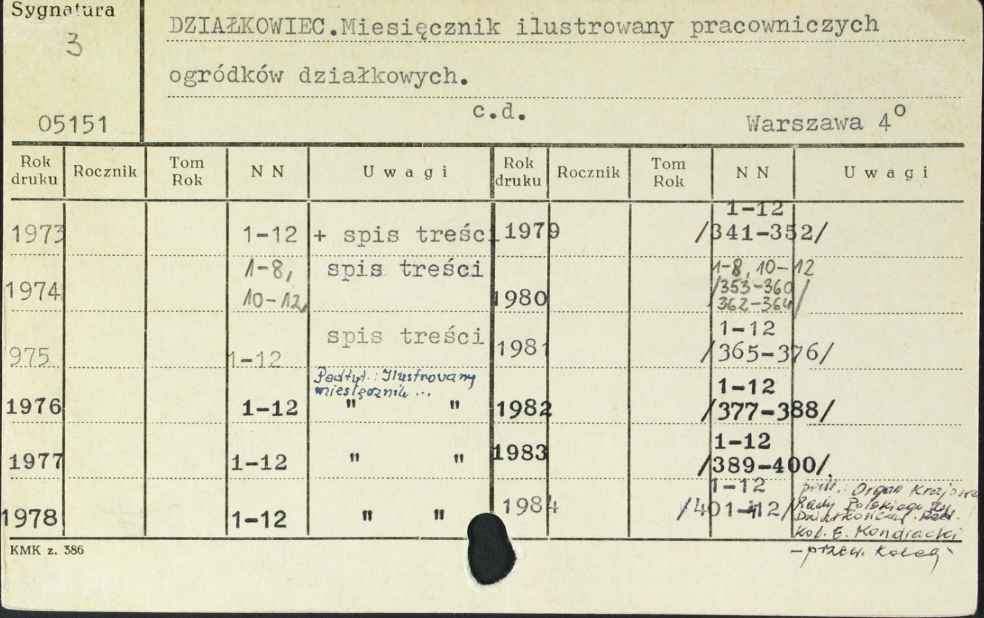 Sygnatura
3
05151
DZIAŁKOWIEC.Miesięcznik ilustrowany pracowniczych
ogródków działkowych.
c.d.
Warszawa 4o
Rok druku Rocznik Tom Rok N N Uwagi Rok druku Rocznik Tom Rok N N Uwagi
1973 1-12 + spis treści
1974 1-8, 10-12, spis treści
975 1-12 spis treści
Podtyt.: Ilustrowany
miesięcznik ...
1976 1-12 " "
1977 1-12 " "
1978 1-12 " "
1979 1-12 /341-352/
1980 1-8, 10-12 /353-360 362-364/
1981 1-12 /365-376/
1982 1-12 /377-388/
1983 1-12 /389-400/
1984 1-12 /401-412/
Organ Krajowa
Rady Polskiego
Kol. E. Kondracki
- przew. Koleg
KMK z. 386